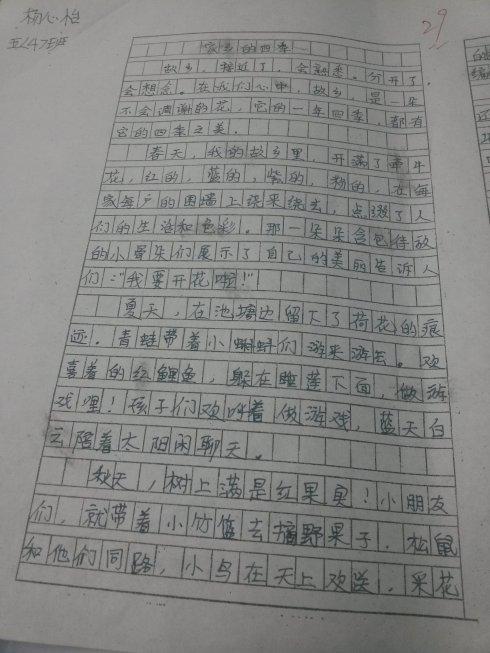 杨心怡
五(4)班
29
家乡的四季
故乡，接近了，会熟悉。分开了，
会想念。在我们心中，故乡，是一朵
不会凋谢的花，它的一年四季，都有
它的四季之美。
春天，我的故乡里，开满了牵牛
花，红的，蓝的，紫的，粉的，在每
家每户的围墙上绕来绕去，点缀了人
们的生活和色彩。那一朵朵含苞待放
的小朵们展示了自己的美丽告诉人
们："我要开花啦！"
夏天，在池塘边留下了荷花的痕
迹。青蛙带着小蝌蚪们游来游去。欢
喜着的红鲤鱼，躲在睡莲下面，做游
戏哩！孩子们欢呼着做游戏，蓝天白
云陪着太阳闲聊天。
秋天，树上满是红果实！小朋友
们，就带着小竹篮去摘野果子，松鼠
和他们同路，小鸟在天上欢送，采花